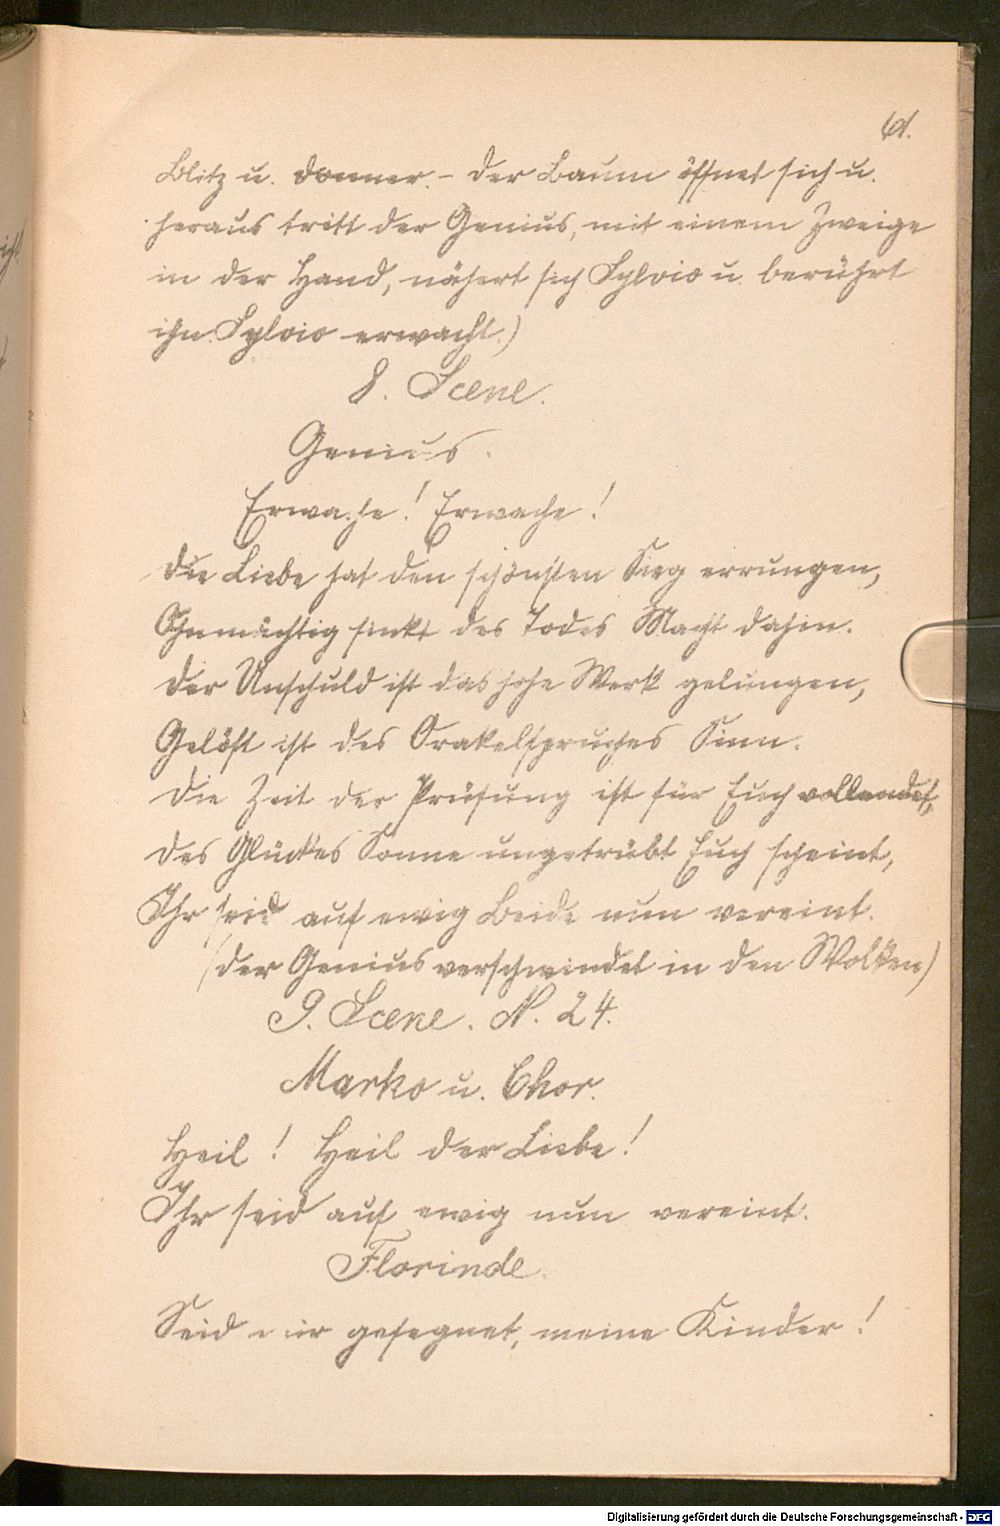 61.
Blitz u. Donner. – Der Baum öffnet sich u.
heraus tritt der Genius, mit einem Zweige
in der Hand, nähert sich Sylvio u. berührt
ihn. Sylvio erwacht.)
8. Scene.
Genius.
Erwache! Erwache!
Die Liebe hat den schönsten Sieg errungen,
Ohnmächtig sinkt des Todes Macht dahin.
Der Unschuld ist das hohe Werk gelungen,
Gelöst ist des Orakelspruches Sinn.
Die Zeit der Prüfung ist für Euch vollendet,
Des Glückes Sonne ungetrübt Euch scheint,
Ihr seid auf ewig Beide nun vereint.
(Der Genius verschwindet in den Wolken)
9. Scene. N. 24.
Marko u. Chor.
Heil! Heil der Liebe!
Ihr seid auf ewig nun vereint.
Florinde.
Seid mir gesegnet, meine Kinder!
Digitalisierung gefördert durch die Deutsche Forschungsgemeinschaft - DFG